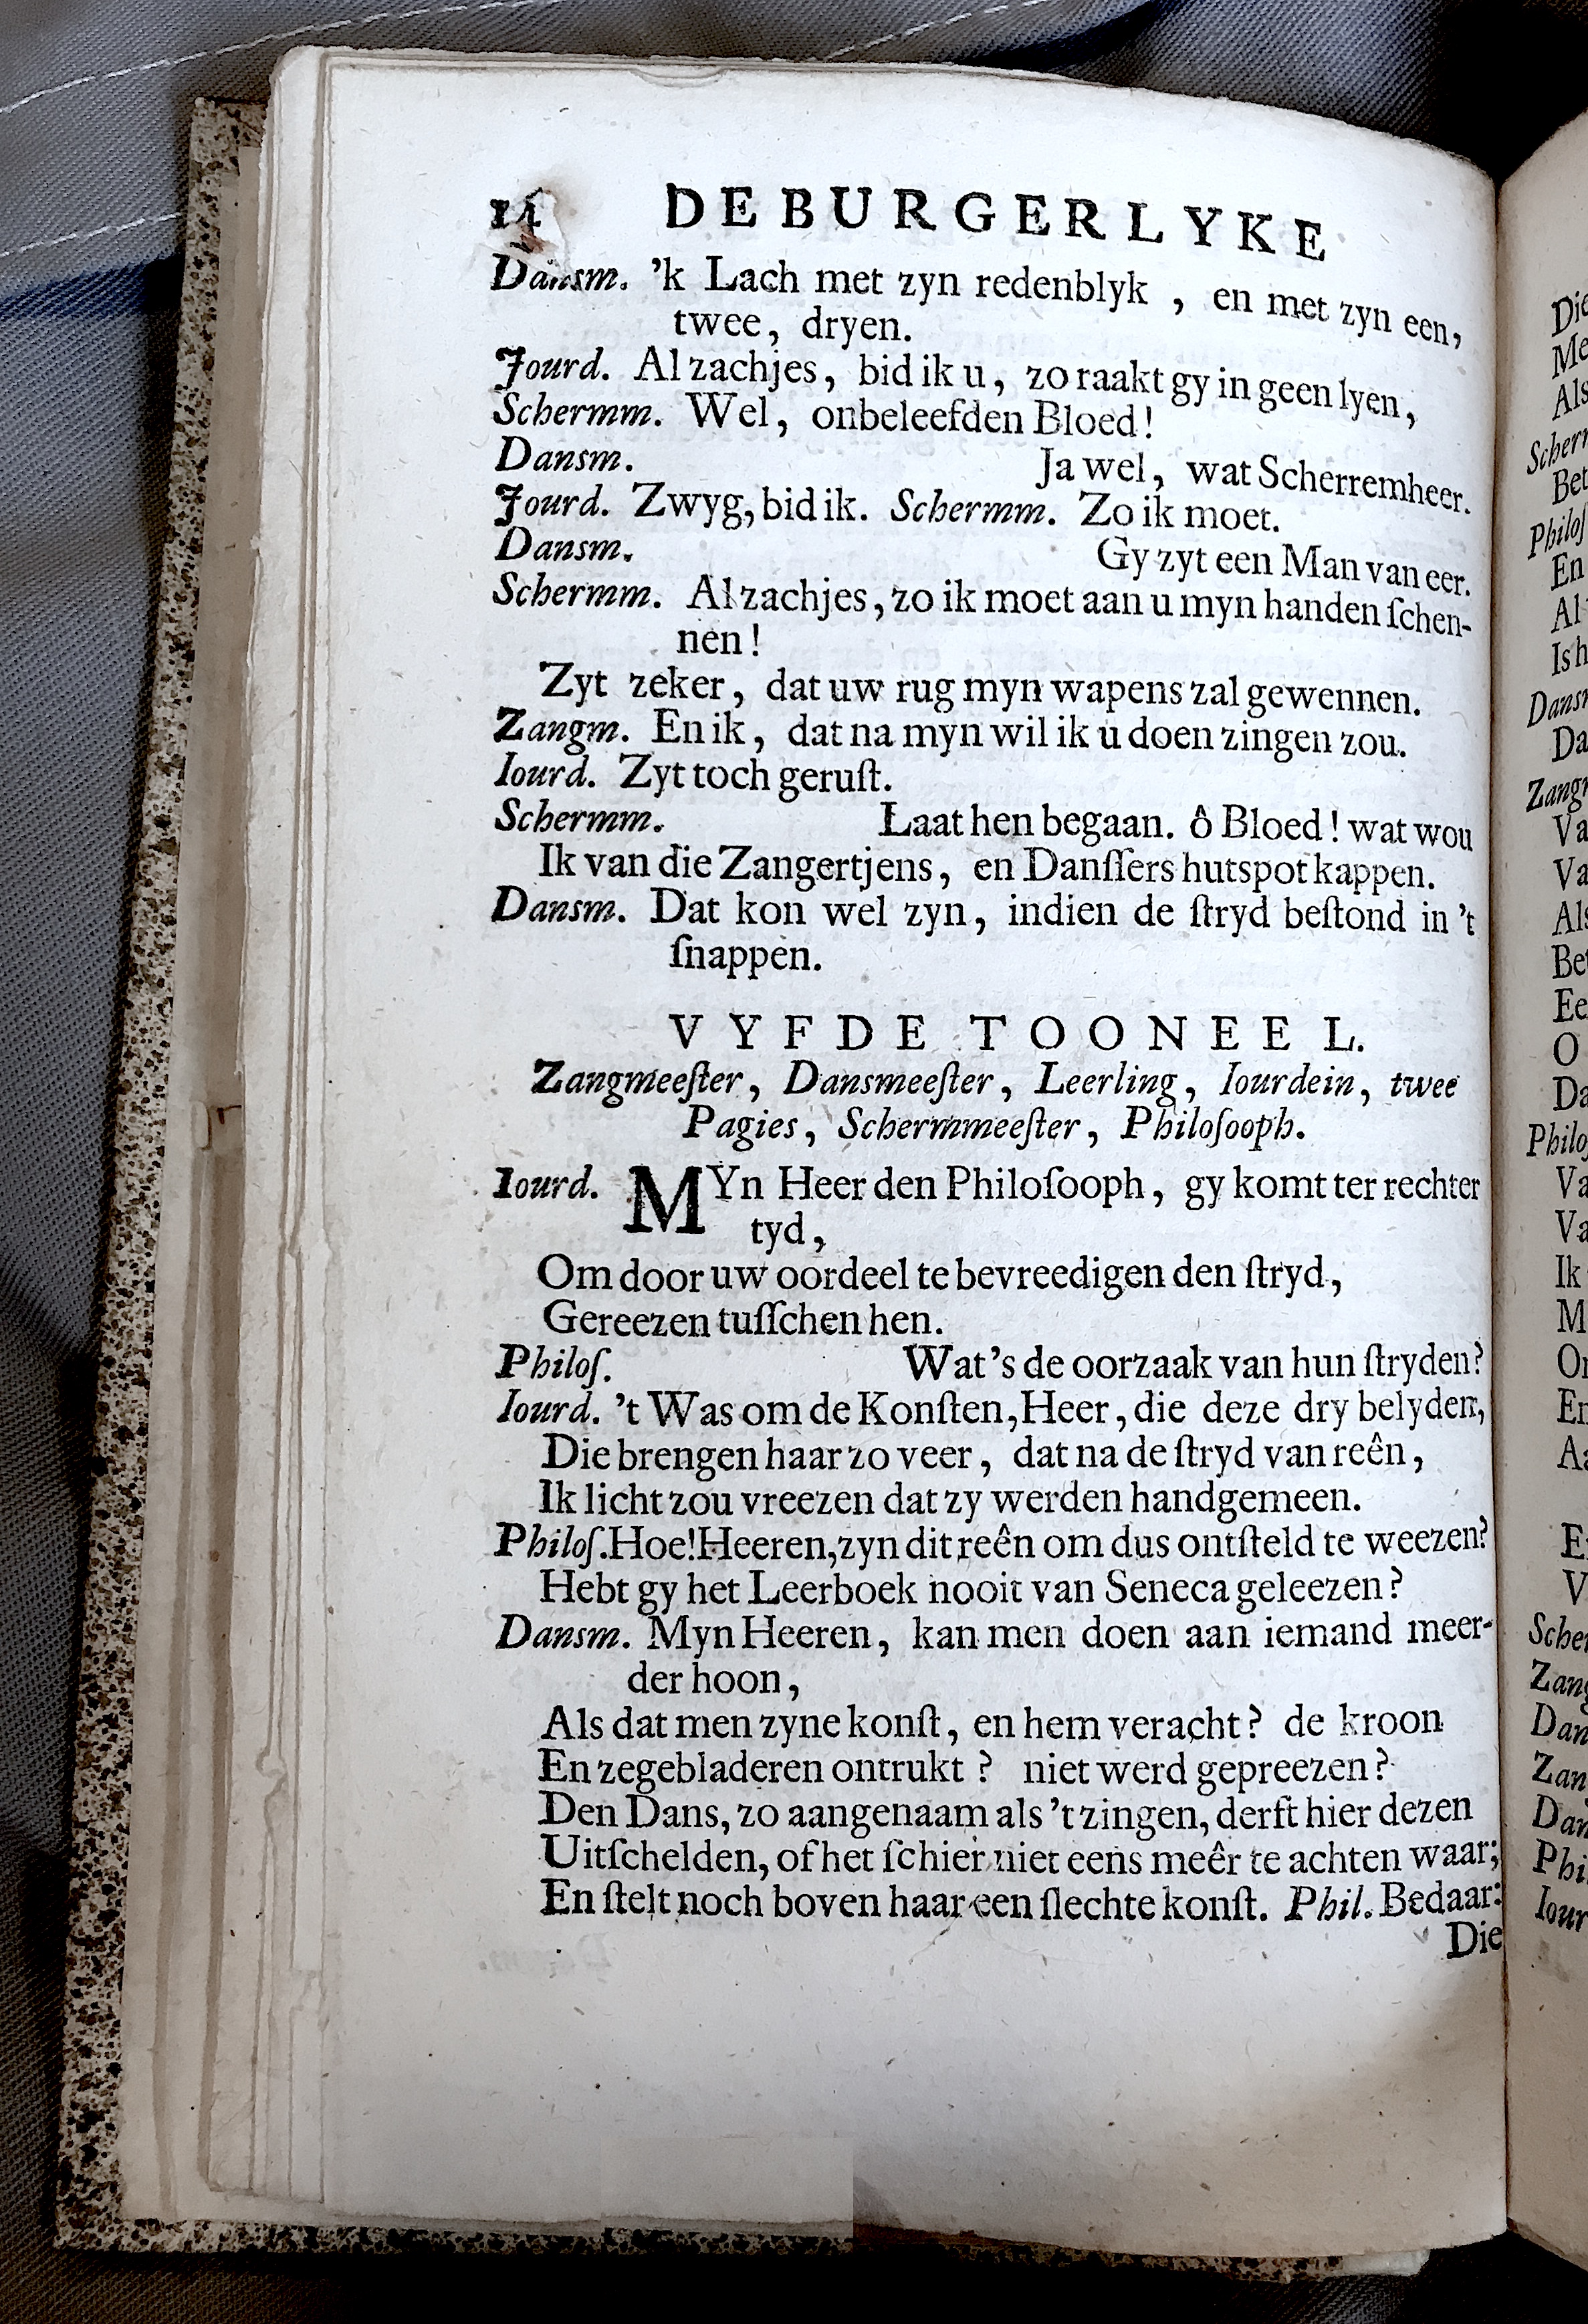 14 DE BURGERLYKE
Dansm. 'k Lach met zyn redenblyk , en met zyn een,
twee, dryen.
Jourd. Al zachjes, bid ik u, zo raakt gy in geen lyen,
Schermm. Wel, onbeleefden Bloed!
Dansm. Ja wel, wat Scherremheer.
Jourd. Zwyg, bid ik. Schermm. Zo ik moet.
Dansm. Gy zyt een Man van eer.
Schermm. Al zachjes, zo ik moet aan u myn handen ſchen-
nen!
Zyt zeker, dat uw rug myn wapens zal gewennen.
Zangm. En ik, dat na myn wil ik u doen zingen zou.
Iourd. Zyt toch geruſt.
Schermm. Laat hen begaan. ô Bloed! wat wou
Ik van die Zangertjens, en Danſſers hutspot kappen.
Dansm. Dat kon wel zyn, indien de ſtryd beſtond in 't
ſnappen.
VYFDE TOONEEL.
Zangmeeſter, Dansmeeſter, Leerling, Iourdein, twee
Pagies, Schermmeeſter, Philoſooph.
Iourd. MYn Heer den Philoſooph, gy komt ter rechter
tyd,
Om door uw oordeel te bevreedigen den ſtryd,
Gereezen tuſſchen hen.
Philoſ. Wat's de oorzaak van hun ſtryden?
Iourd. 't Was om de Konſten, Heer, die deze dry belyden,
Die brengen haar zo veer, dat na de ſtryd van reên,
Ik licht zou vreezen dat zy werden handgemeen.
Philoſ. Hoe! Heeren, zyn dit reên om dus ontſteld te weezen?
Hebt gy het Leerboek nooit van Seneca geleezen?
Dansm. Myn Heeren, kan men doen aan iemand meer-
der hoon,
Als dat men zyne konſt, en hem veracht? de kroon
En zegebladeren ontrukt? niet werd gepreezen?
Den Dans, zo aangenaam als 't zingen, derft hier dezen
Uitſchelden, of het ſchier niet eens meêr te achten waar;
En ſtelt noch boven haar een ſlechte konſt. Phil. Bedaar:
Die
Die
Me
Als
Scherm
Bet
Philoſ
En
Al
Is h
Dansm
Da
Zangm
Va
Va
Als
Bet
Ee
O
Da
Philoſ
Va
Va
Ik
M
On
En
Aa
E
V
Scher
Zang
Dan
Zan
Dan
Phi
Iour